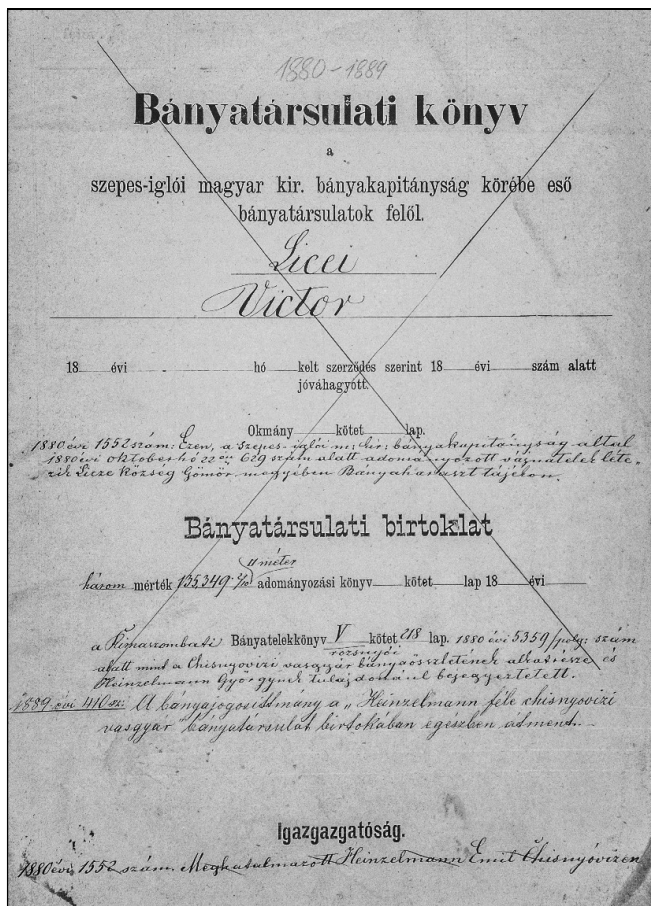 1880-1889
Bányatársulati könyv
a
szepes-iglói magyar kir. bányakapitányság körébe eső
bányatársulatok felől.
Licei
Victor
18 évi hó kelt szerződés szerint 18 évi szám alatt
jóváhagyott.
Okmány kötet lap.
1880 évi 1552 szám: Ezen, a Szepes-iglói m: kir: bányakapitányság által
1880 évi oktober hó 22 én 629 szám alatt adományozott vájnatelek léte-
zik Licze község Gömör megyében Bányahanaszt tájékon.
Bányatársulati birtoklat
□ méter
három mérték 135,349 adományozási könyv kötet lap 18 évi
a Rimaszombati Bányatelekkönyv V kötet 218 lap. 1880 évi 5359/polg: szám
rozsnyói
alatt mint a Chisnyovizi vasgyár bányaösszletének alkatrésze és
Heinzelmann Györgynek tulajdonául bejegyeztetett.
1889. évi 410 sz: A bányajogosittmány a „Heinzelmann féle chisnyovizi
vasgyár" bányatársulat birtokában egészben átment.
Igazgazgatóság.
1880 évi 1552 szám. Meghatalmazott Heinzelmann Emil Chisnyóvizen